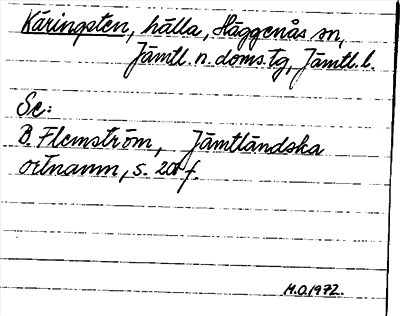 Käringsten, hälla, Häggenås sn,
Jämtl. n. doms.tg, Jämtl. l.
Se:
B. Flemström, Jämtländska
ortnamn, s. 20 f.
M.O.1972.